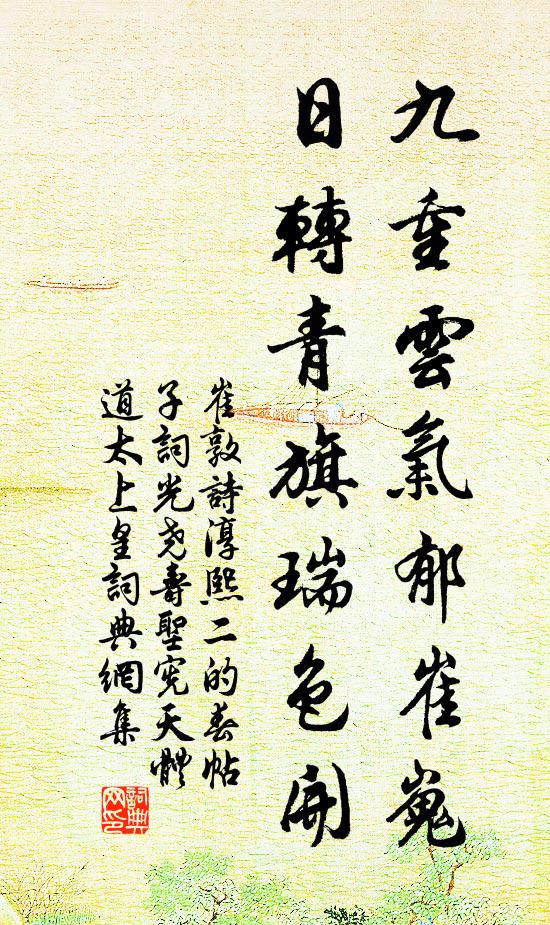 九重雲氣郁崔嵬
日轉青旗瑞色開
崔敦詩淳熙二的春帖
子詞光堯壽聖憲天體
道太上皇詞典網集
詞典
网印